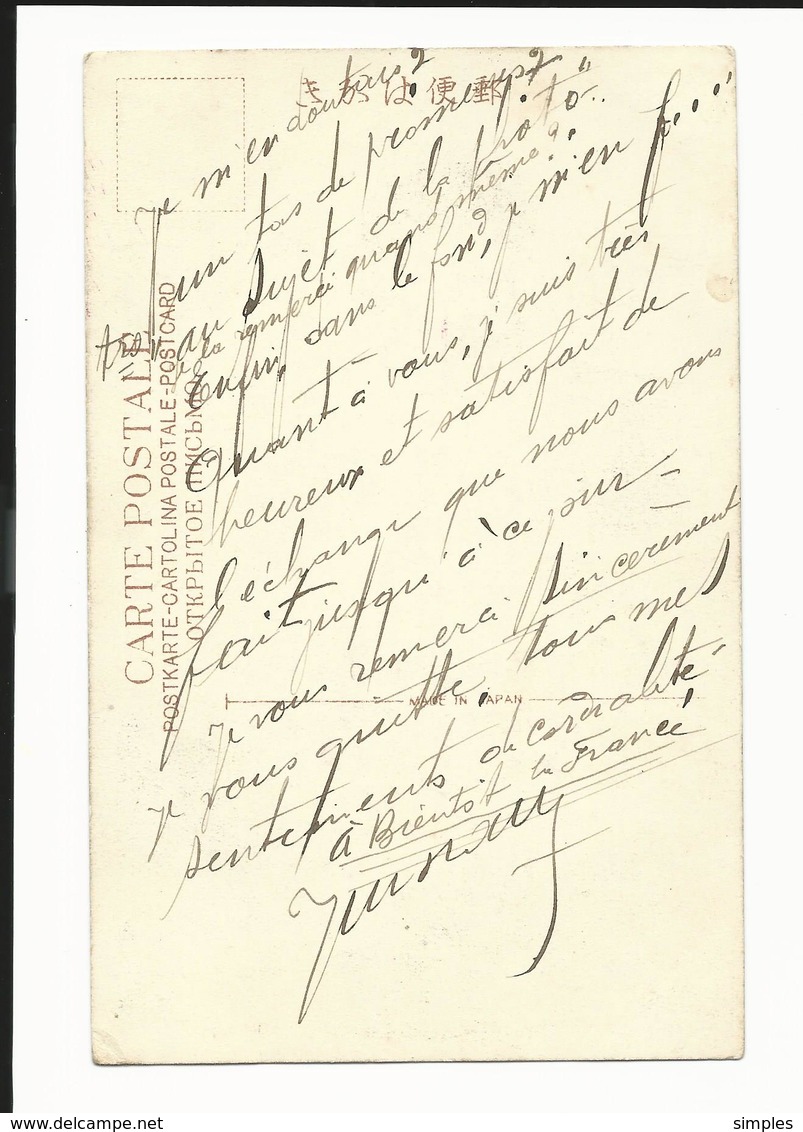 きかは便郵
je m'en doutais?
un tas de promesses?
au sujet de la photo..
très
la remerci quand même?
Enfin, dans le fond, je m'en f...."
Quant à vous, j'suis très
heureux et satisfait de
l'échange que nous avons
fait jusqu'à ce jour –
je vous remerci sincèrement
je vous quitte, tous mes
sentements de Cordialité
à Bientôt la France
CARTE POSTALE
POSTKARTE-CARTOLINA POSTALE-POSTCARD
ОТКРЫТОЕ ПИСЬМО
MADE IN JAPAN
delcampe.net
simples